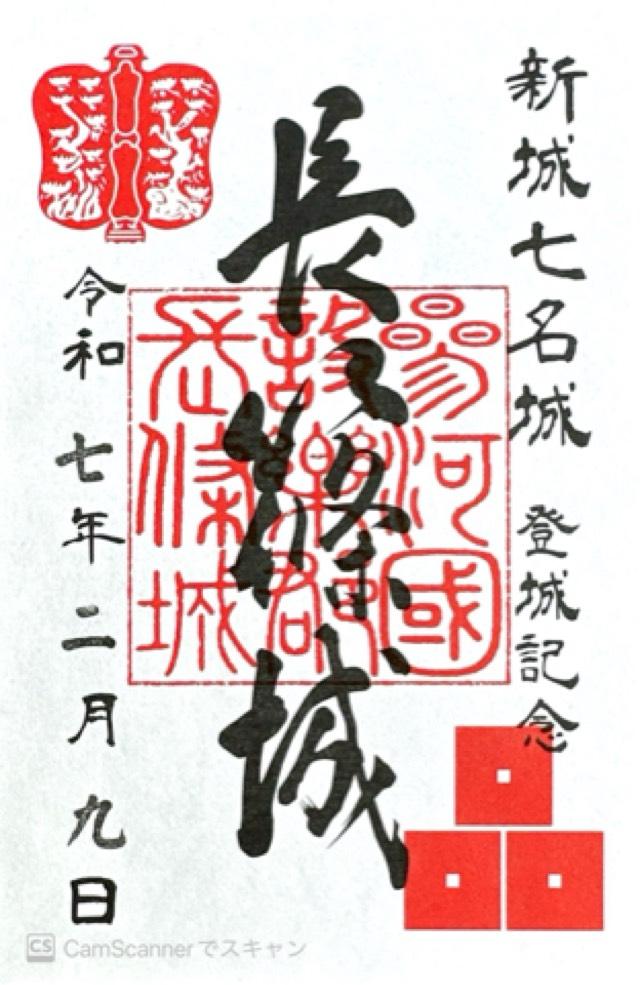 新城七名城 登城記念
長篠城
參河國
設樂郡
長篠城
令和 七年 二月 九日
CS CamScannerでスキャン